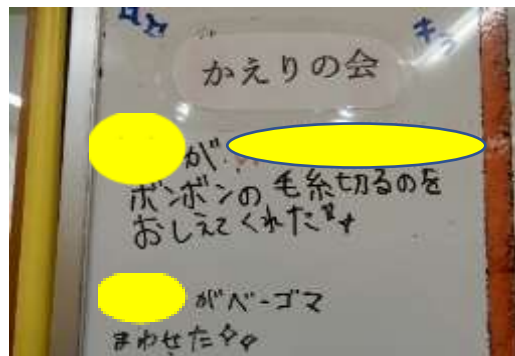 かえりの会
が
ボンボンの毛糸切るのを
おしえてくれた
がベーゴマ
まわせた